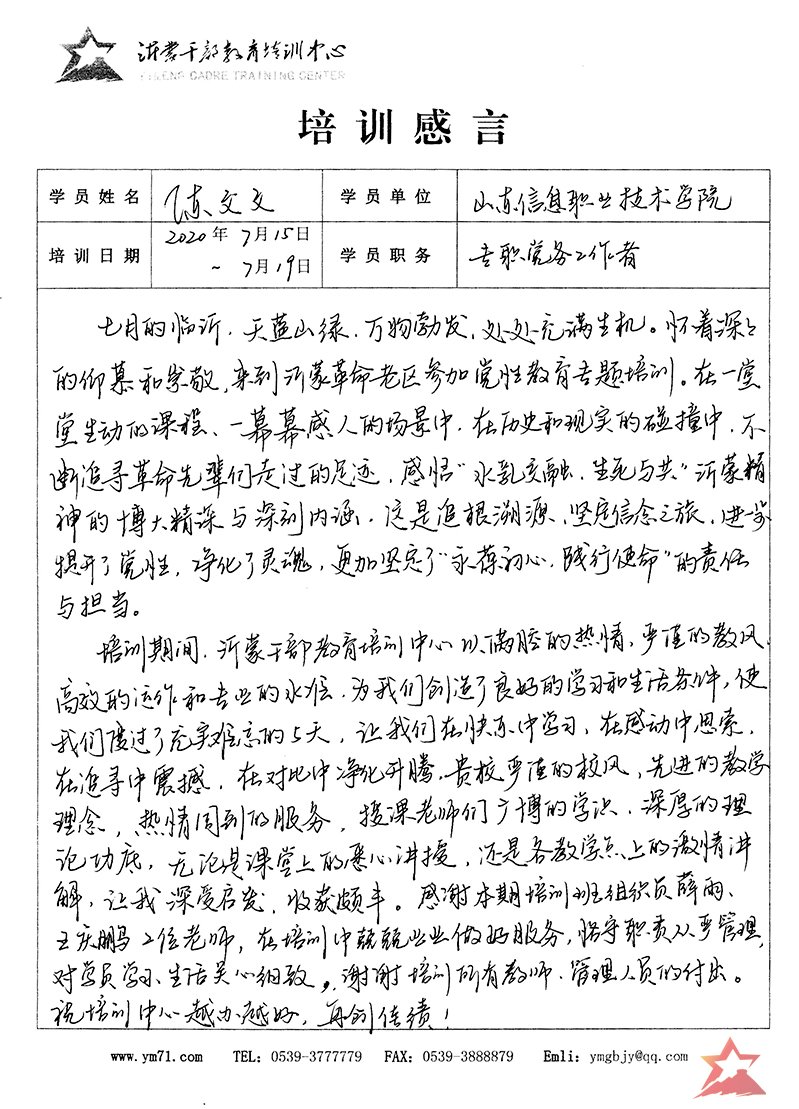 沂蒙干部教育培训中心
YIMENG CADRE TRAINING CENTER
培训感言
学员姓名 陈文文 学员单位 山东信息职业技术学院
培训日期 2020年7月15日 ~ 7月19日 学员职务 专职党务工作者
七月的临沂，天蓝山绿，万物勃发，处处充满生机。怀着深深
的仰慕和崇敬，来到沂蒙革命老区参加党性教育专题培训。在一堂
堂生动的课程、一幕幕感人的场景中，在历史和现实的碰撞中，不
断追寻革命先辈们走过的足迹，感悟“水乳交融、生死与共”沂蒙精
神的博大精深与深刻内涵，这是追根溯源、坚定信念之旅，进一步
提升了党性，净化了灵魂，更加坚定了“永葆初心、践行使命”的责任
与担当。
培训期间，沂蒙干部教育培训中心以满腔的热情，严谨的教风
高效的运作和专业的水准，为我们创造了良好的学习和生活条件，使
我们度过了充实难忘的5天，让我们在快乐中学习，在感动中思索，
在追寻中震撼，在对比中净化升腾，贵校严谨的校风，先进的教学
理念，热情周到的服务，授课老师们广博的学识、深厚的理
论功底，无论是课堂上的悉心讲授，还是各教学点上的激情讲
解，让我深受启发，收获颇丰。感谢本期培训班组织员薛雨、
王庆鹏2位老师，在培训中兢兢业业做好服务，恪守职责从严管理，
对学员学习、生活关心细致，谢谢培训所有教师、管理人员的付出。
祝培训中心越办越好，再创佳绩！
www.ym71.com TEL：0539-3777779 FAX：0539-3888879 Emli：ymgbjy@qq.com